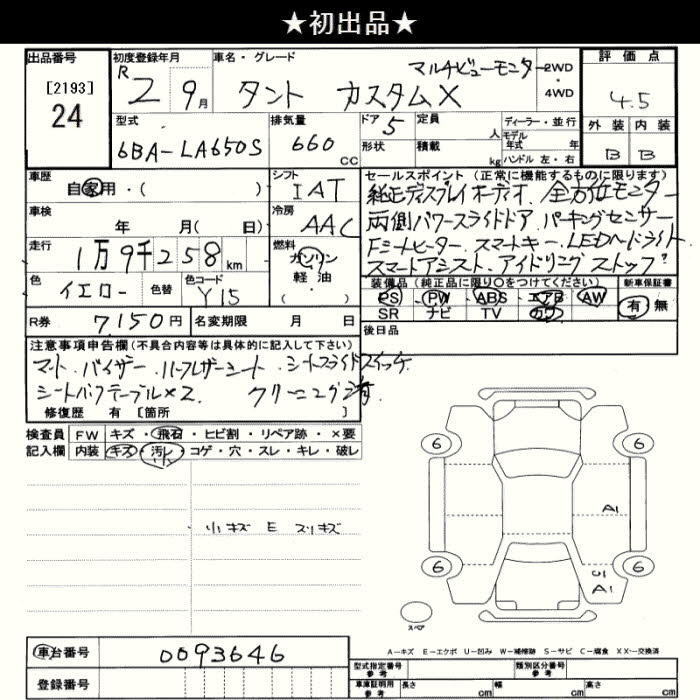 ★初出品★
出品番号
[2193]
24
初度登録年月
R2 9月
車名・グレード
タント カスタムX
マルチビューモニター
2WD
・
4WD
評価点
4.5
外装 内装
B B
型式
6BA-LA650S
排気量
660 cc
ドア 5
形状
定員 人
積載 kg
ディーラー・並行
モデル年式 年
ハンドル 左・右
車歴
自家用・( )
シフト
IAT
車検
年 月( 日)
冷房
AAC
走行
1万9千258km
燃料
ガソリン
軽油
・( )
色
イエロー
色替
色コード
Y15
R券
7,150円
名変期限 月 日
セールスポイント(正常に機能するものに限ります)
純正ディスプレイオーディオ、全方位モニター
両側パワースライドドア、パーキングセンサー
Fシートヒーター、スマートキー、LEDヘッドライト
スマートアシスト、アイドリングストップ
装備品(純正品に限り○をつけてください)
新車保証書
PS PW ABS エアB AW
SR ナビ TV カワ
有 無
後日品
注意事項申告欄(不具合内容等は具体的に記入して下さい)
マット、バイザー、ハーフレザーシート、シートスライドスイッチ
シートバックテーブル×2、クリーニング済
修復歴 有 [箇所 ]
検査員
記入欄
FW キズ・飛石・ヒビ割・リペア跡・×要
内装 キズ・汚レ・コゲ・穴・スレ・キレ・破レ
小キズ E スリキズ
6 6
A1
6 6
U1
A1
スペア
A-キズ E-エクボ U-凹み W-補修跡 S-サビ C-腐食 XX-交換済
車台番号
0093646
登録番号
型式指定番号
参考
類別区分番号
参考
車庫証明用
参考
長さ cm
幅 cm
高さ cm